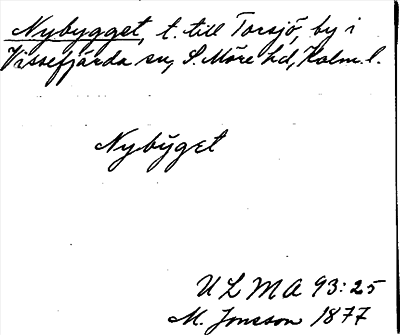 Nybygget, t. till Torsjö, by i
Vissefjärda sn, S. Möre hd, Kalm. l.
Nybÿget
ULMA 93:25
M. Jonsson 1877